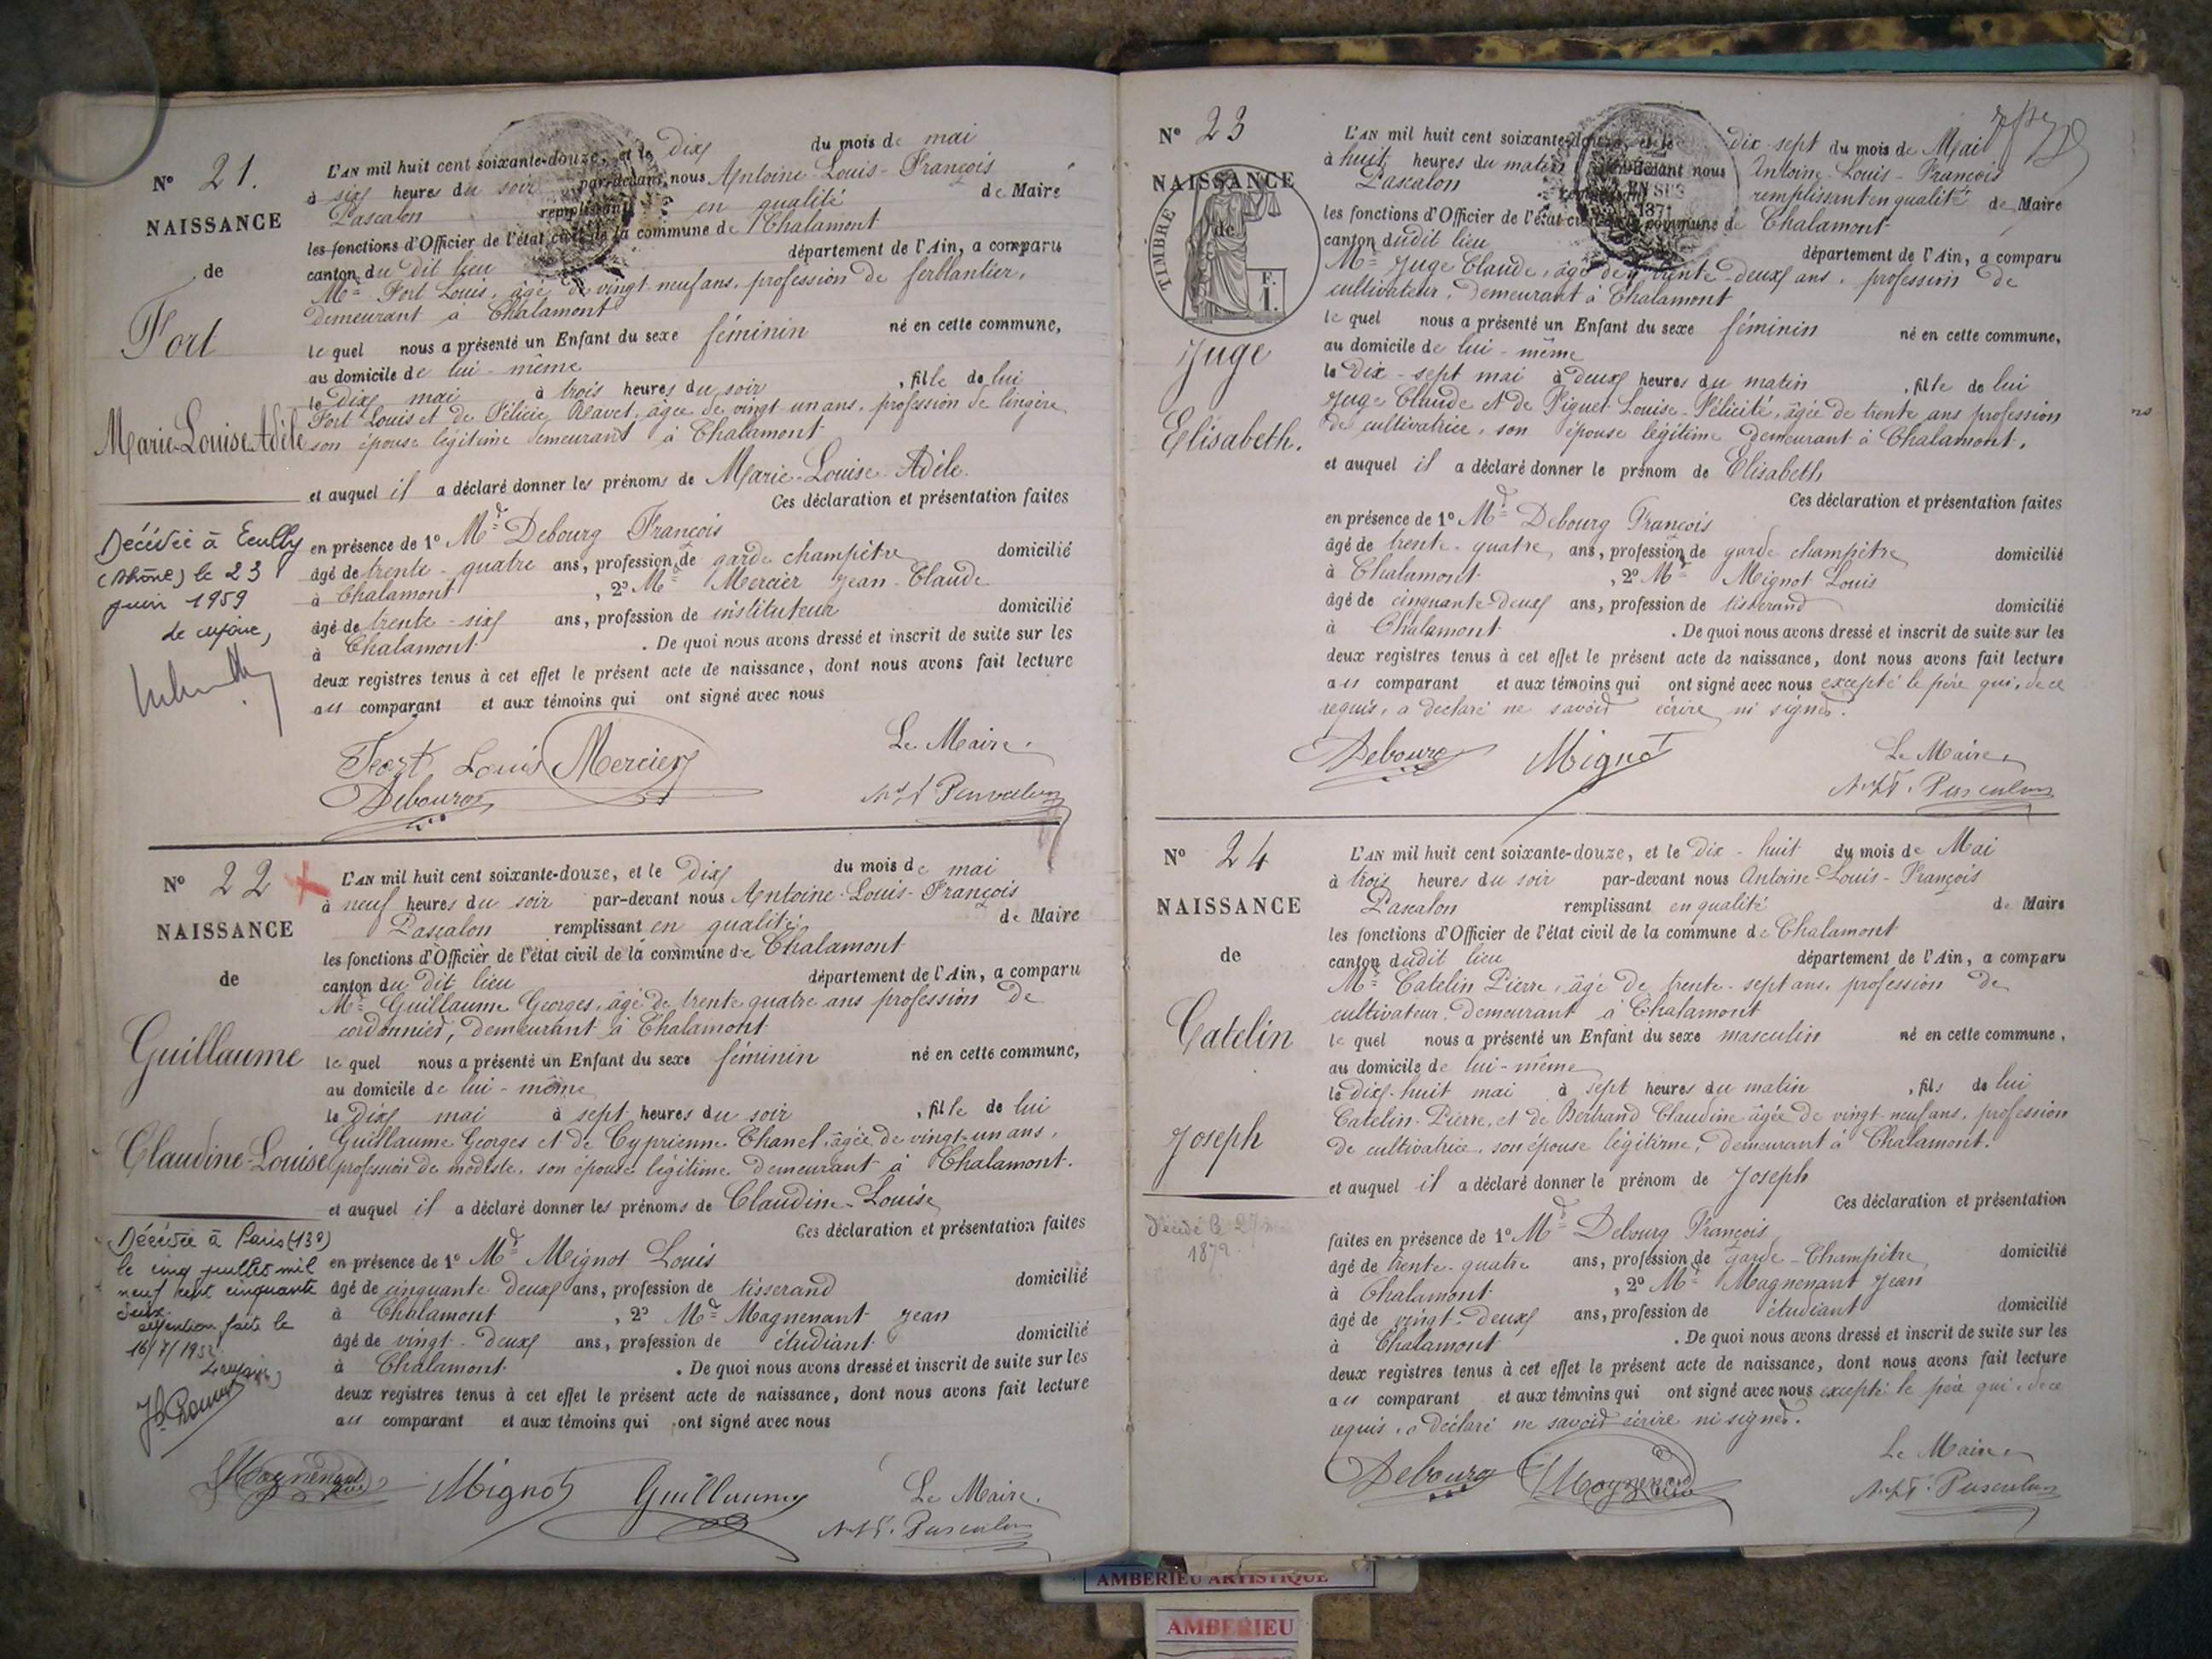 N° 21.
NAISSANCE
de
Fort
Marie-Louise-Adèle
Décédée à Ecully
(Rhône) le 23
juin 1959
Le Maire,
L'AN mil huit cent soixante-douze, et le Dix du mois de mai
à six heures du soir par-devant nous Antoine-Louis-François
Pascalon remplissant en qualité de Maire
les fonctions d'Officier de l'état civil de la commune de Chalamont
canton du dit lieu département de l'Ain, a comparu
Mr Fort Louis, âgé de vingt-neuf ans, profession de ferblantier,
demeurant à Chalamont
lequel nous a présenté un Enfant du sexe féminin né en cette commune,
au domicile de lui-même
le dix mai à trois heures du soir, fille de lui
Fort Louis et de Félicie Ravet, âgée de vingt-un ans, profession de lingère
son épouse légitime demeurant à Chalamont
et auquel il a déclaré donner les prénoms de Marie-Louise-Adèle.
Ces déclaration et présentation faites
en présence de 1° Md Debourg François
âgé de trente-quatre ans, profession de garde champêtre domicilié
à Chalamont, 2° Md Mercier Jean-Claude
âgé de trente-six ans, profession de instituteur domicilié
à Chalamont. De quoi nous avons dressé et inscrit de suite sur les
deux registres tenus à cet effet le présent acte de naissance, dont nous avons fait lecture
au comparant et aux témoins qui ont signé avec nous
Fort Louis Mercier Le Maire,
Debourg Pascalon
N° 22
NAISSANCE
de
Guillaume
Claudine-Louise
Décédée à Paris (13e)
le cinq juillet mil
neuf cent cinquante
deux.
mention faite le
16/7/1952
Le Maire,
L'AN mil huit cent soixante-douze, et le Dix du mois de mai
à neuf heures du soir par-devant nous Antoine-Louis-François
Pascalon remplissant en qualité de Maire
les fonctions d'Officier de l'état civil de la commune de Chalamont
canton du dit lieu département de l'Ain, a comparu
Mr Guillaume Georges, âgé de trente quatre ans profession de
cordonnier, demeurant à Chalamont
lequel nous a présenté un Enfant du sexe féminin né en cette commune,
au domicile de lui-même
le Dix mai à sept heures du soir, fille de lui
Guillaume Georges et de Cyprienne Chanel, âgée de vingt-un ans,
profession de modiste, son épouse légitime demeurant à Chalamont.
et auquel il a déclaré donner les prénoms de Claudine-Louise
Ces déclaration et présentation faites
en présence de 1° Md Mignot Louis
âgé de cinquante deux ans, profession de tisserand domicilié
à Chalamont, 2° Md Magnenant Jean
âgé de vingt-deux ans, profession de étudiant domicilié
à Chalamont. De quoi nous avons dressé et inscrit de suite sur les
deux registres tenus à cet effet le présent acte de naissance, dont nous avons fait lecture
au comparant et aux témoins qui ont signé avec nous
Magnenant Mignot Guillaume Le Maire,
Pascalon
N° 23
NAISSANCE
de
TIMBRE
F.
1.
Juge
Elisabeth.
L'AN mil huit cent soixante-douze, et le dix-sept du mois de Mai
à huit heures du matin par-devant nous Antoine-Louis-François
Pascalon remplissant en qualité de Maire
les fonctions d'Officier de l'état civil de la commune de Chalamont
canton dudit lieu département de l'Ain, a comparu
Mr Juge Claude, âgé de trente-deux ans, profession de
cultivateur, demeurant à Chalamont
lequel nous a présenté un Enfant du sexe féminin né en cette commune,
au domicile de lui-même
le Dix-sept mai à deux heures du matin, fille de lui
Juge Claude et de Piguet Louise-Félicité, âgée de trente ans profession
de cultivatrice, son épouse légitime demeurant à Chalamont.
et auquel il a déclaré donner le prénom de Elisabeth
Ces déclaration et présentation faites
en présence de 1° Md Debourg François
âgé de trente-quatre ans, profession de garde champêtre domicilié
à Chalamont, 2° Md Mignot Louis
âgé de cinquante-deux ans, profession de tisserand domicilié
à Chalamont. De quoi nous avons dressé et inscrit de suite sur les
deux registres tenus à cet effet le présent acte de naissance, dont nous avons fait lecture
au comparant et aux témoins qui ont signé avec nous excepté le père qui, de ce
requis, a déclaré ne savoir écrire ni signer.
Debourg Mignot Le Maire,
Pascalon
N° 24
NAISSANCE
de
Catelin
Joseph
Décédé le 27
1872.
L'AN mil huit cent soixante-douze, et le Dix-huit du mois de Mai
à trois heures du soir par-devant nous Antoine-Louis-François
Pascalon remplissant en qualité de Maire
les fonctions d'Officier de l'état civil de la commune de Chalamont
canton dudit lieu département de l'Ain, a comparu
Mr Catelin Pierre, âgé de trente-sept ans, profession de
cultivateur. demeurant à Chalamont
lequel nous a présenté un Enfant du sexe masculin né en cette commune,
au domicile de lui-même
le Dix-huit mai à sept heures du matin, fils de lui
Catelin Pierre, et de Bertrand Claudine âgée de vingt-neuf ans, profession
de cultivatrice, son épouse légitime, demeurant à Chalamont.
et auquel il a déclaré donner le prénom de Joseph
Ces déclaration et présentation
faites en présence de 1° Md Debourg François
âgé de trente-quatre ans, profession de garde-Champêtre domicilié
à Chalamont, 2° Md Magnenant Jean
âgé de vingt-deux ans, profession de étudiant domicilié
à Chalamont. De quoi nous avons dressé et inscrit de suite sur les
deux registres tenus à cet effet le présent acte de naissance, dont nous avons fait lecture
au comparant et aux témoins qui ont signé avec nous excepté le père qui, de ce
requis, a déclaré ne savoir écrire ni signer.
Debourg Magnenant Le Maire,
Pascalon
AMBERIEU ARTISTIQUE
AMBERIEU